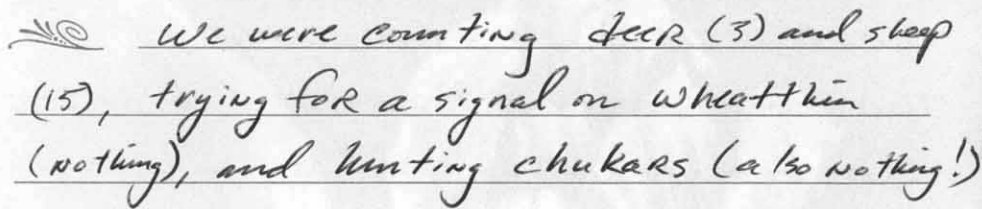 We were counting deer (3) and sheep
(15), trying for a signal on wheatthin
(nothing), and hunting chukars (also nothing!)